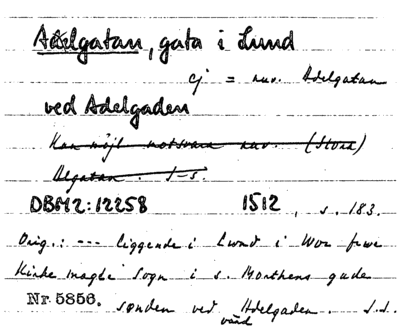 Adelgatan, gata i Lund
ej = nuv. Adelgatan
ved Adelgaden
Kan möjl. motsvara nuv. (Stora)
Algatan. S-s.
DBM2:12258 1512, s. 183.
Orig.: --- liggende i Lund i Wor frwe
Kirke magle sogn i s. Morthens gade
Nr 5856. sønden ved Adelgaden. S.S.